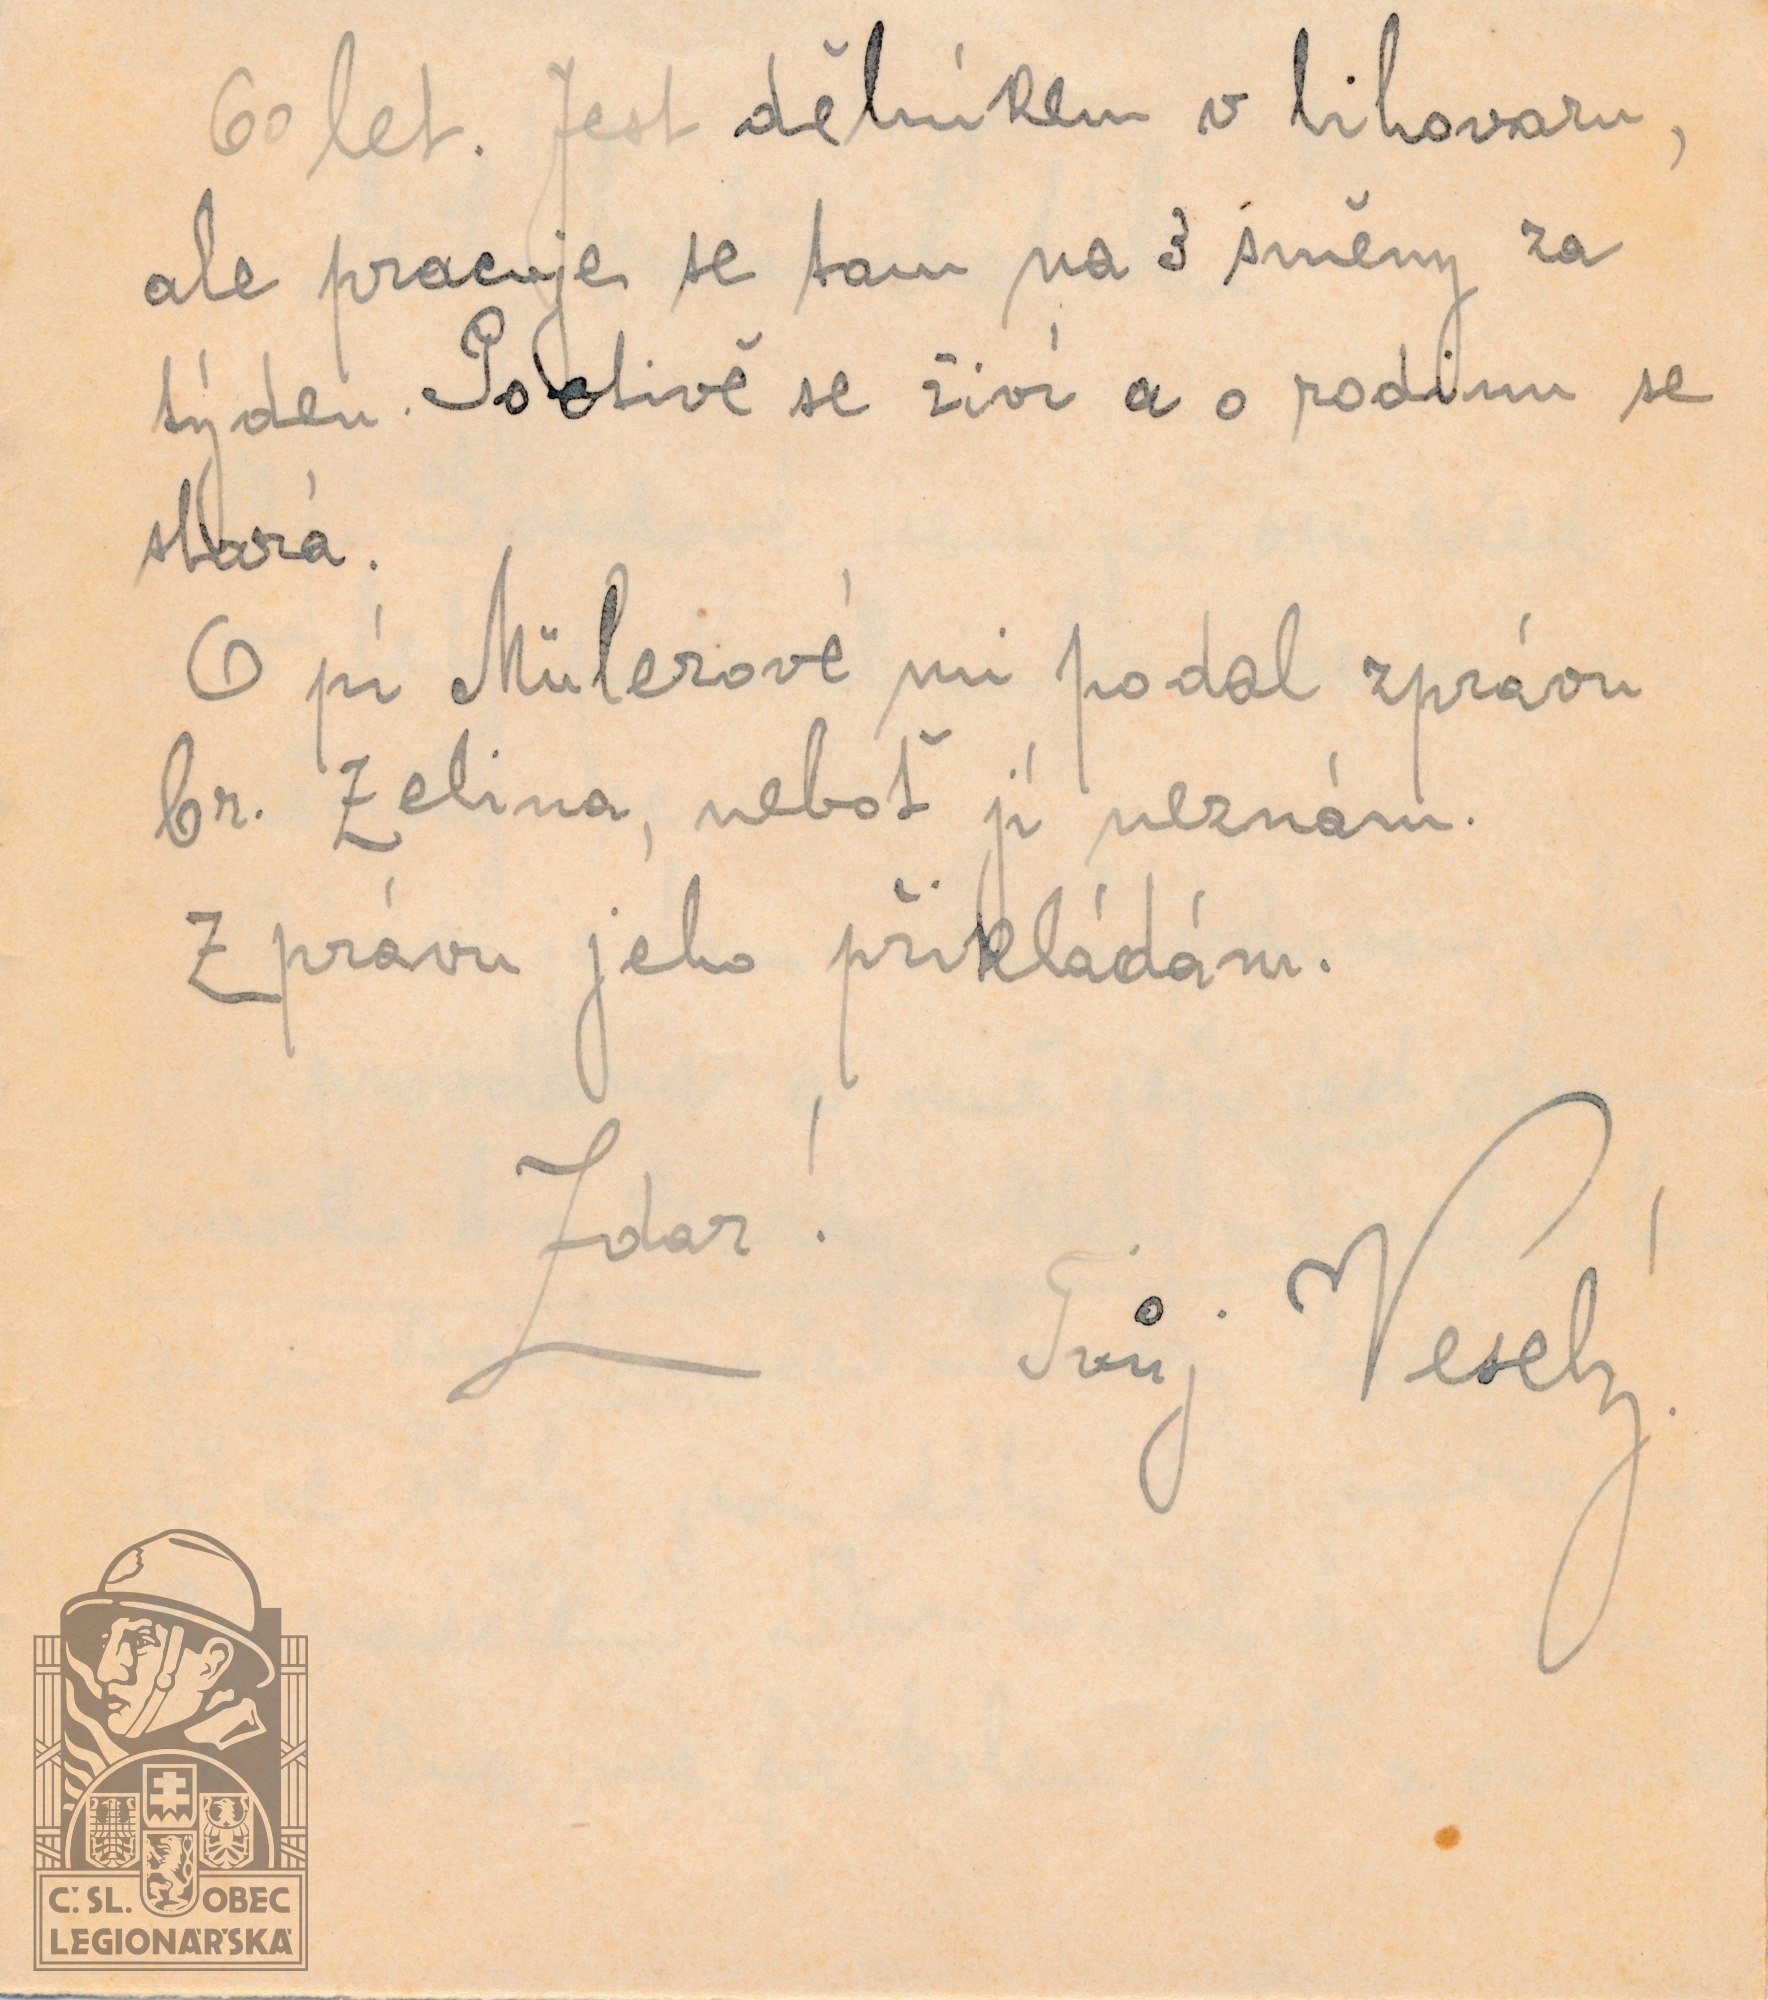 60 let. Jest dělníkem v lihovaru,
ale pracuje se tam na 3 směny za
týden. Poctivě se živí a o rodinu se
stará.
O pí Mülerové mi podal zprávu
br. Zelina, neboť jí neznám.
Zprávu jeho přikládám.
Zdar!
Tvůj Veselý.
Č.SL. OBEC
LEGIONÁŘSKÁ